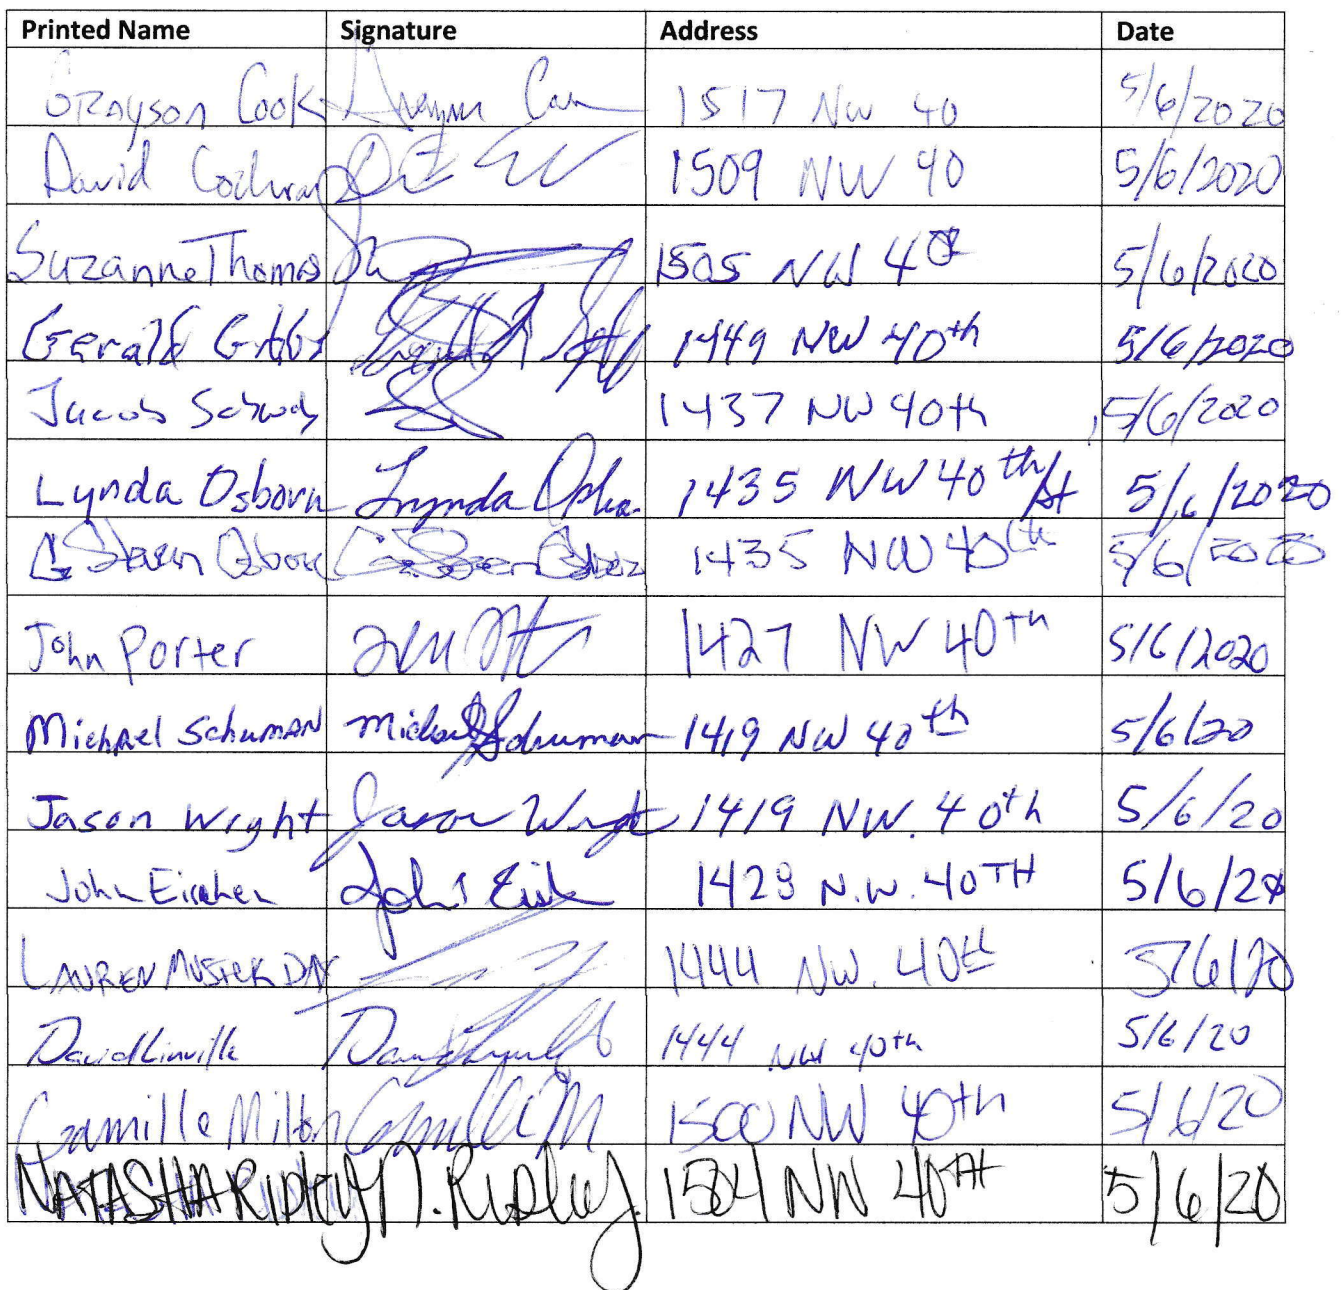 Printed Name Signature Address Date
Grayson Cook 1517 NW 40 5/6/2020
David Cochran 1509 NW 40 5/6/2020
Suzanne Thomas 1505 NW 40th 5/6/2020
Gerald Gibbs 1449 NW 40th 5/6/2020
Jacob 1437 NW 40th 5/6/2020
Lynda Osborn Lynda Osborn 1435 NW 40th St 5/6/2020
Steven Osborn 1435 NW 40th 5/6/2020
John Porter 1427 NW 40th 5/6/2020
Michael Schuman Michael Schuman 1419 NW 40th 5/6/20
Jason Wright Jason Wright 1419 NW. 40th 5/6/20
John John 1428 N.W. 40TH 5/6/20
LAUREN 1444 NW. 40th 5/6/20
David Linville David Linville 1444 NW 40th 5/6/20
Camille Milton Camille M 1500 NW 40th 5/6/20
NATASHA RIDLEY N. RIDLEY 1504 NW 40TH 5/6/20